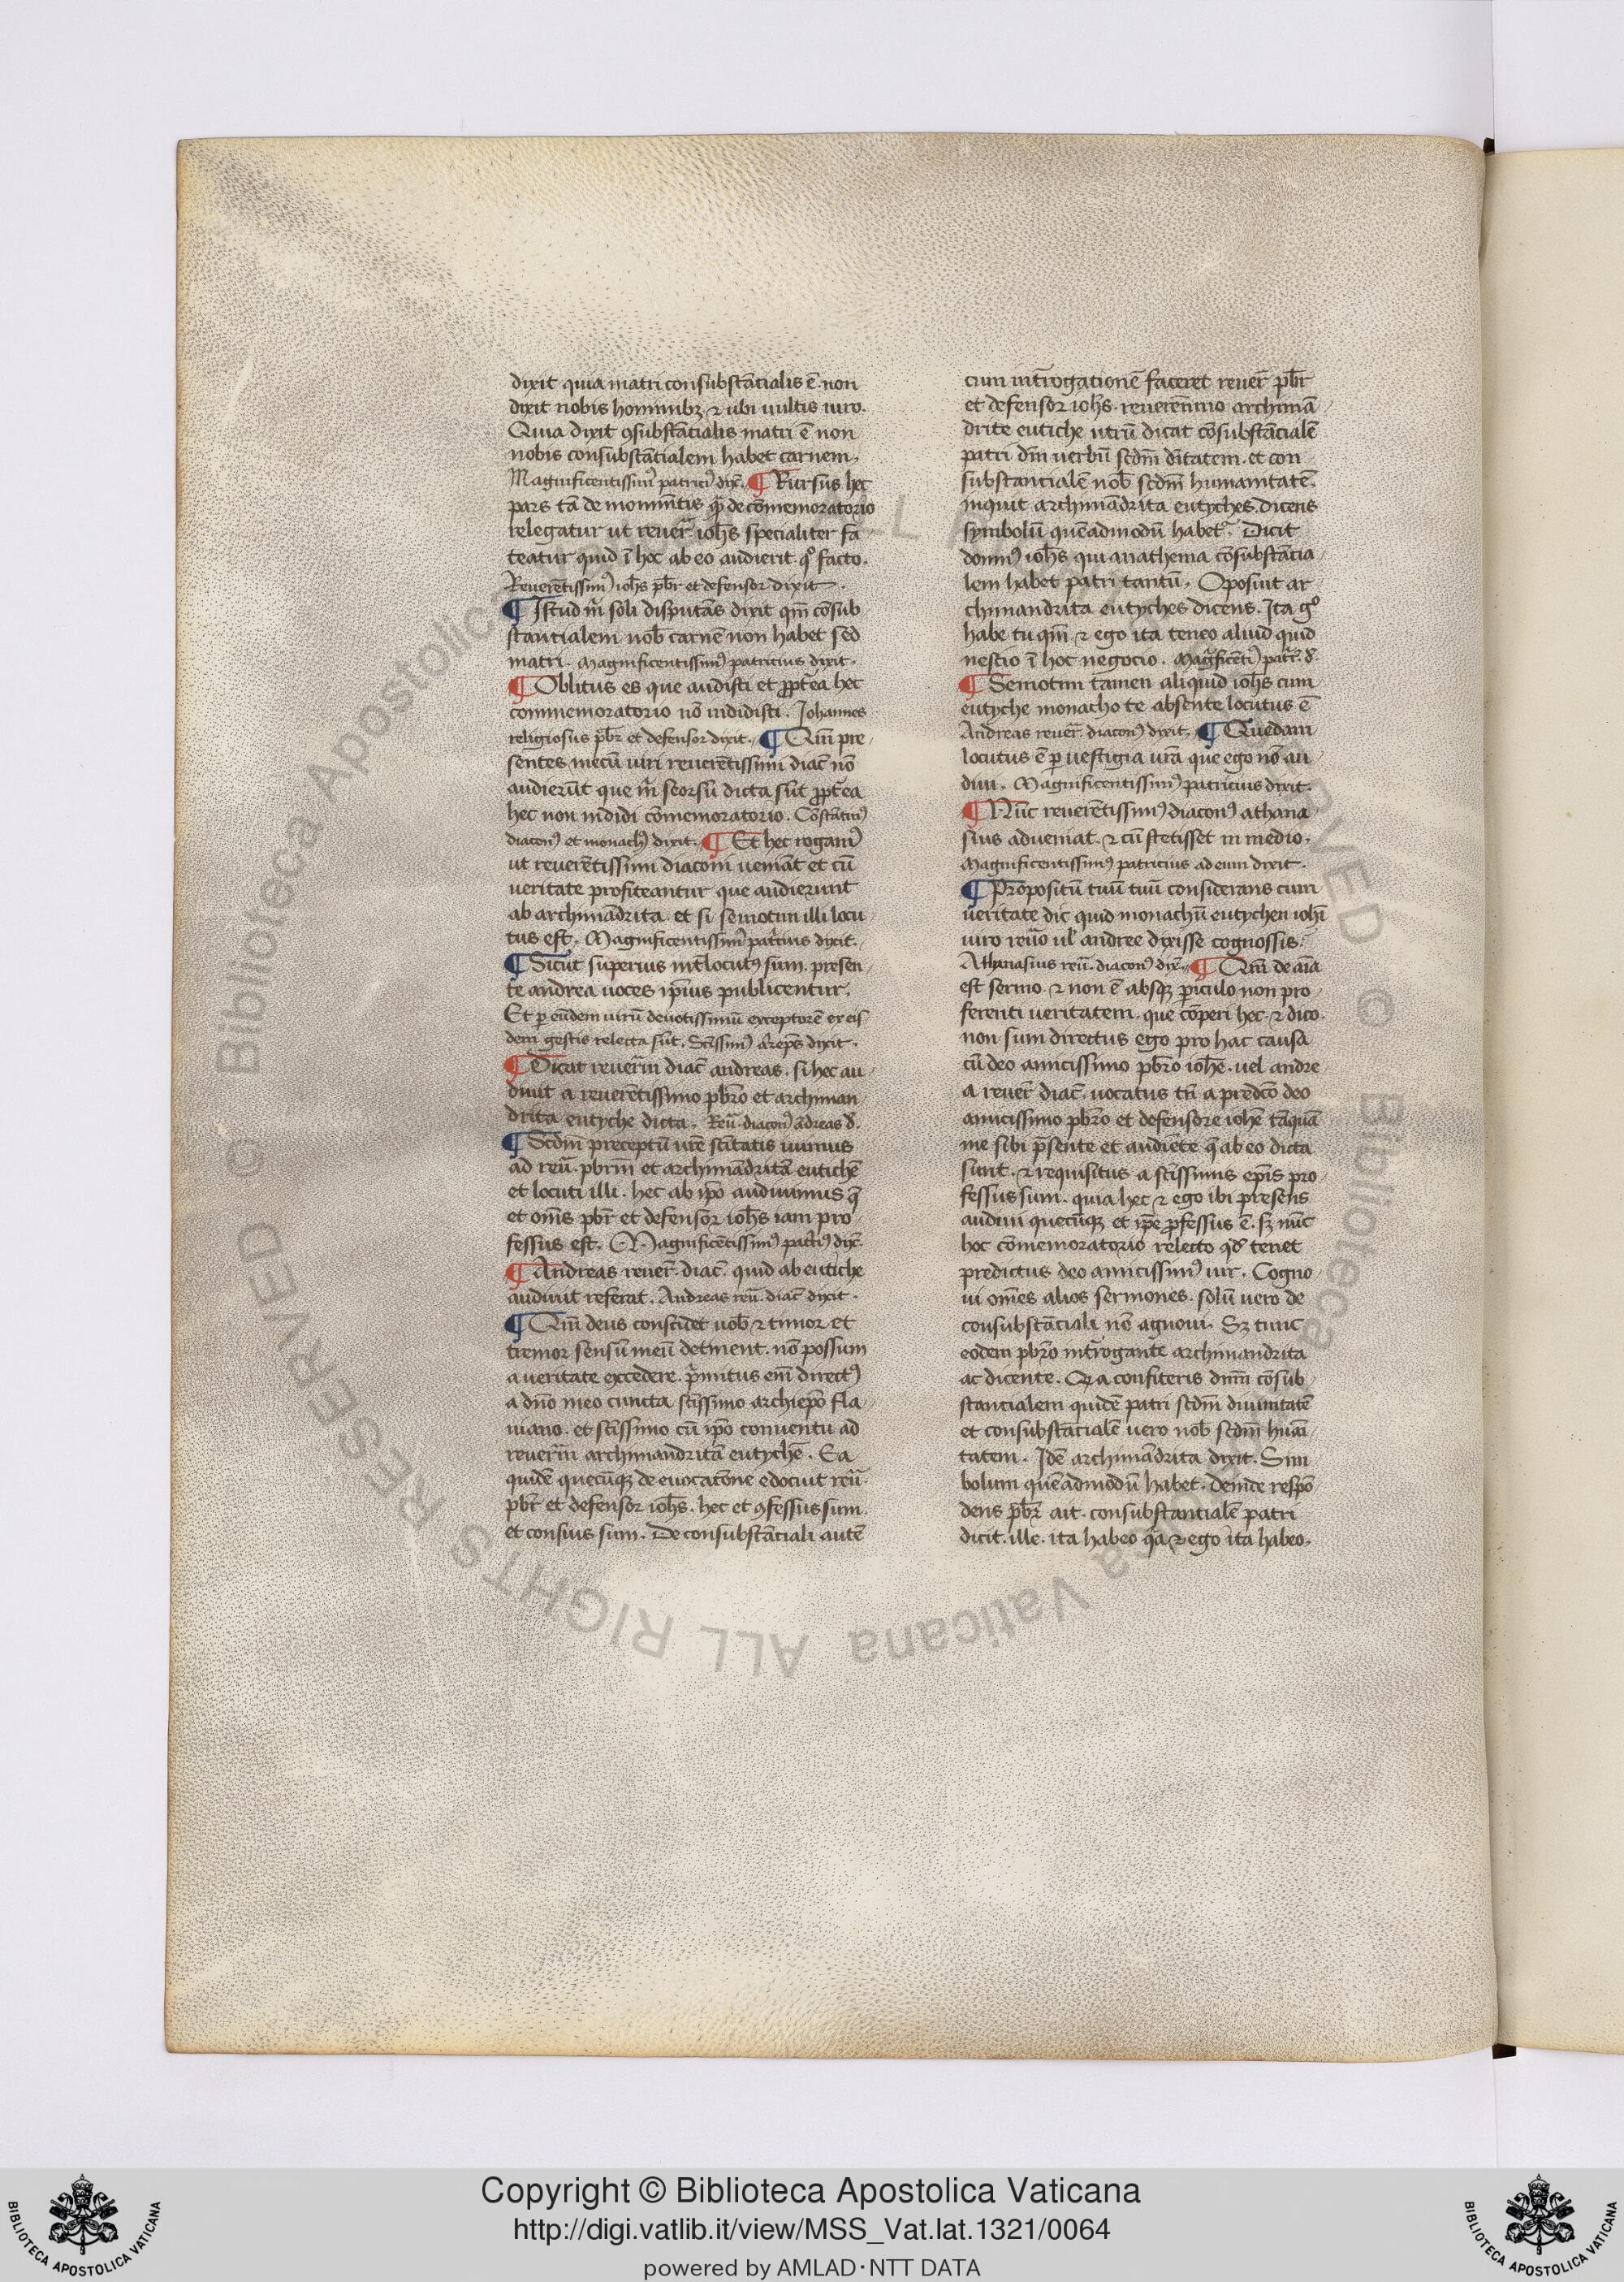 dixit quia matri consubstãtialis ẽ. non
dixit nobis hominibꝫ ⁊ ubi uultis iuro.
Quia dixit ꝯsubstãtialis matri ẽ non
nobis consubstãtialem habet carnem.
Magnificentissimꝰ patriciꝰ dix̃. ¶ Rursus hec
pars tã de monim̃tis q̃ de cõmemoratorio
relegatur ut reuer̃ ioh̃s specialiter fa
teatur quid ĩ hoc ab eo audierit. qͦ facto.
Reuerẽtissimꝰ ioh̃s pb̃r et defensor dixit.
¶ Istud m̃ soli disputãs dixit qm̃ cõsub
stantialem nob̃ carnẽ non habet sed
matri. Magnificentissimꝰ patricius dixit.
¶ Oblitus es que audisti et ꝓpt̃ea hec
commemoratorio nõ indidisti. Iohannes
religiosus pb̃r et defensor dixit. ¶ Qm̃ pre
sentes mecũ uiri reuerẽtissimi diac̃ nõ
audierũt que m̃ seorsũ dicta sũt ꝓpt̃ea
hec non indidi cõmemoratorio. Cõstãtinꝰ
diaconꝰ et monachꝰ dixit. ¶ Et hec rogamꝰ
ut reuerẽtissimi diaconi ueniãt et cũ
ueritate profiteantur que audierunt
ab archimãdrita. et si semotim illi locu
tus est. Magnificentissimꝰ patricius dixit.
¶ Sicut superius int̃locutꝰ sum. presen
te andrea uoces ip̃ius publicentur.
Et ꝑ eũdem uirũ deuotissimũ exceptorẽ ex eis
dem gestis relecta sũt. Sc̃issimꝰ ar̃ep̃s dixit.
¶ Dicat reuer̃m diac̃ andreas. si hec au
diuit a reuerẽtissimo pb̃ro et archiman
drita eutyche dicta. Reũ. diaconꝰ ãdreas d̃.
¶ Scdm̃ preceptũ ur̃e sc̃itatis iuimus
ad reũ. pbr̃m et archimãdritã eutichẽ
et locuti illi. hec ab ip̃o audiuimus q̃
et om̃s pb̃r et defensor ioh̃s iam pro
fessus est. Magnificẽtissimꝰ patriciꝰ dix̃.
¶ Andreas reuer̃. diac̃. quid ab eutiche
audiuit referat. Andreas reũ. diac̃ dixit.
¶ Qm̃ deus considet nob̃ ⁊ timor et
tremor sensũ meũ detinent. nõ possum
a ueritate excedere. p̃mitus em̃ directꝰ
a dño meo cuncta sc̃issimo archiep̃o fla
uiano. et sc̃issimo cũ ip̃o conuentu ad
reuer̃m archimandritã eutychẽ. Ea
quidẽ quecũqꝫ de euocatõne edocuit reũ.
pb̃r et defensor ioh̃s. hec et ꝯfessus sum.
et consius sum. De consubstãtiali autẽ
cum int̃rogationẽ faceret reuer̃ pb̃r
et defensor ioh̃s. reuerem̃mo archimã
drite eutiche utrũ dicat cõsubstãtialẽ
patri dm̃ uerbũ scdm̃ d̃itatem. et con
substantialẽ nob̃ scdm̃ humanitatẽ.
inquit archimãdrita eutyches. dicens
symbolũ quẽadmodũ habet. Dicit
domnꝰ ioh̃s qui anathema cõsubstãtia
lem habet patri tantũ. Oposuit ar
chimandrita eutyches dicens. Ita gͦ
habe tu qm̃ ⁊ ego ita teneo aliud quid
nescio ĩ hoc negocio. Mag̃ficẽtiꝰ patr̃. d̃.
¶ Semotim tamen aliquid ioh̃s cum
eutyche monacho te absente locutus ẽ
Andreas reuer̃. diaconꝰ dixit. ¶ Quedam
locutus ẽ ꝑ uestigia ur̃a que ego nõ au
diui. Magnificentissimꝰ patricius dixit.
¶ Nũc reuerẽtissimꝰ diaconꝰ athana
sius adueniat. ⁊ cũ stetisset in medio.
Magnificentissimꝰ patricius ad eum dixit.
¶ Propositũ tuũ tuũ considerans cum
ueritate dic quid monachũ eutychen ioh̃i
uiro reũo ul̃ andree dixisse cognossis.
Athanasius reũ. diaconꝰ dix̃. ¶ Qm̃ de aĩa
est sermo. ⁊ non ẽ absqꝫ ꝑiculo non pro
ferenti ueritatem. que cõperi hec. ⁊ dico.
non sum directus ego pro hac causa
cũ deo amicissimo pb̃ro ioh̃e. uel andre
a reuer̃ diac̃. uocatus tñ a predc̃o deo
amicissimo pb̃ro et defensore ioh̃e tãquã
me sibi p̃sente et audiẽte q̃ ab eo dicta
sunt. ⁊ requisitus a sc̃issimis ep̃is pro
fessus sum. quia hec ⁊ ego ibi presens
audiui quecũqꝫ et ip̃e ꝓfessus ẽ. sꝫ nũc
hoc cõmemoratorio relecto qđ tenet
predictus deo amicissimꝰ uir. Cogno
ui om̃es alios sermones. solũ uero de
consubstãtiali nõ agnoui. Sꝫ tunc
eodem pb̃ro int̃rogante archimandrita
ac dicente. Q̃a confiteris dm̃m cõsub
stantialem quidẽ patri scdm̃ diuinitatẽ
et consubstãtialẽ uero nob̃ scdm̃ huãi
tatem. Idẽ archimãdrita dixit. Sim
bolum quẽadmodũ habet. deinde respõ
dens pb̃r ait. consubstantialẽ patri
dicit. ille. ita habeo q̃a ⁊ ego ita habeo.
Copyright © Biblioteca Apostolica Vaticana
http://digi.vatlib.it/view/MSS_Vat.lat.1321/0064
powered by AMLAD·NTT DATA
BIBLIOTECA APOSTOLICA VATICANA
BIBLIOTECA APOSTOLICA VATICANA